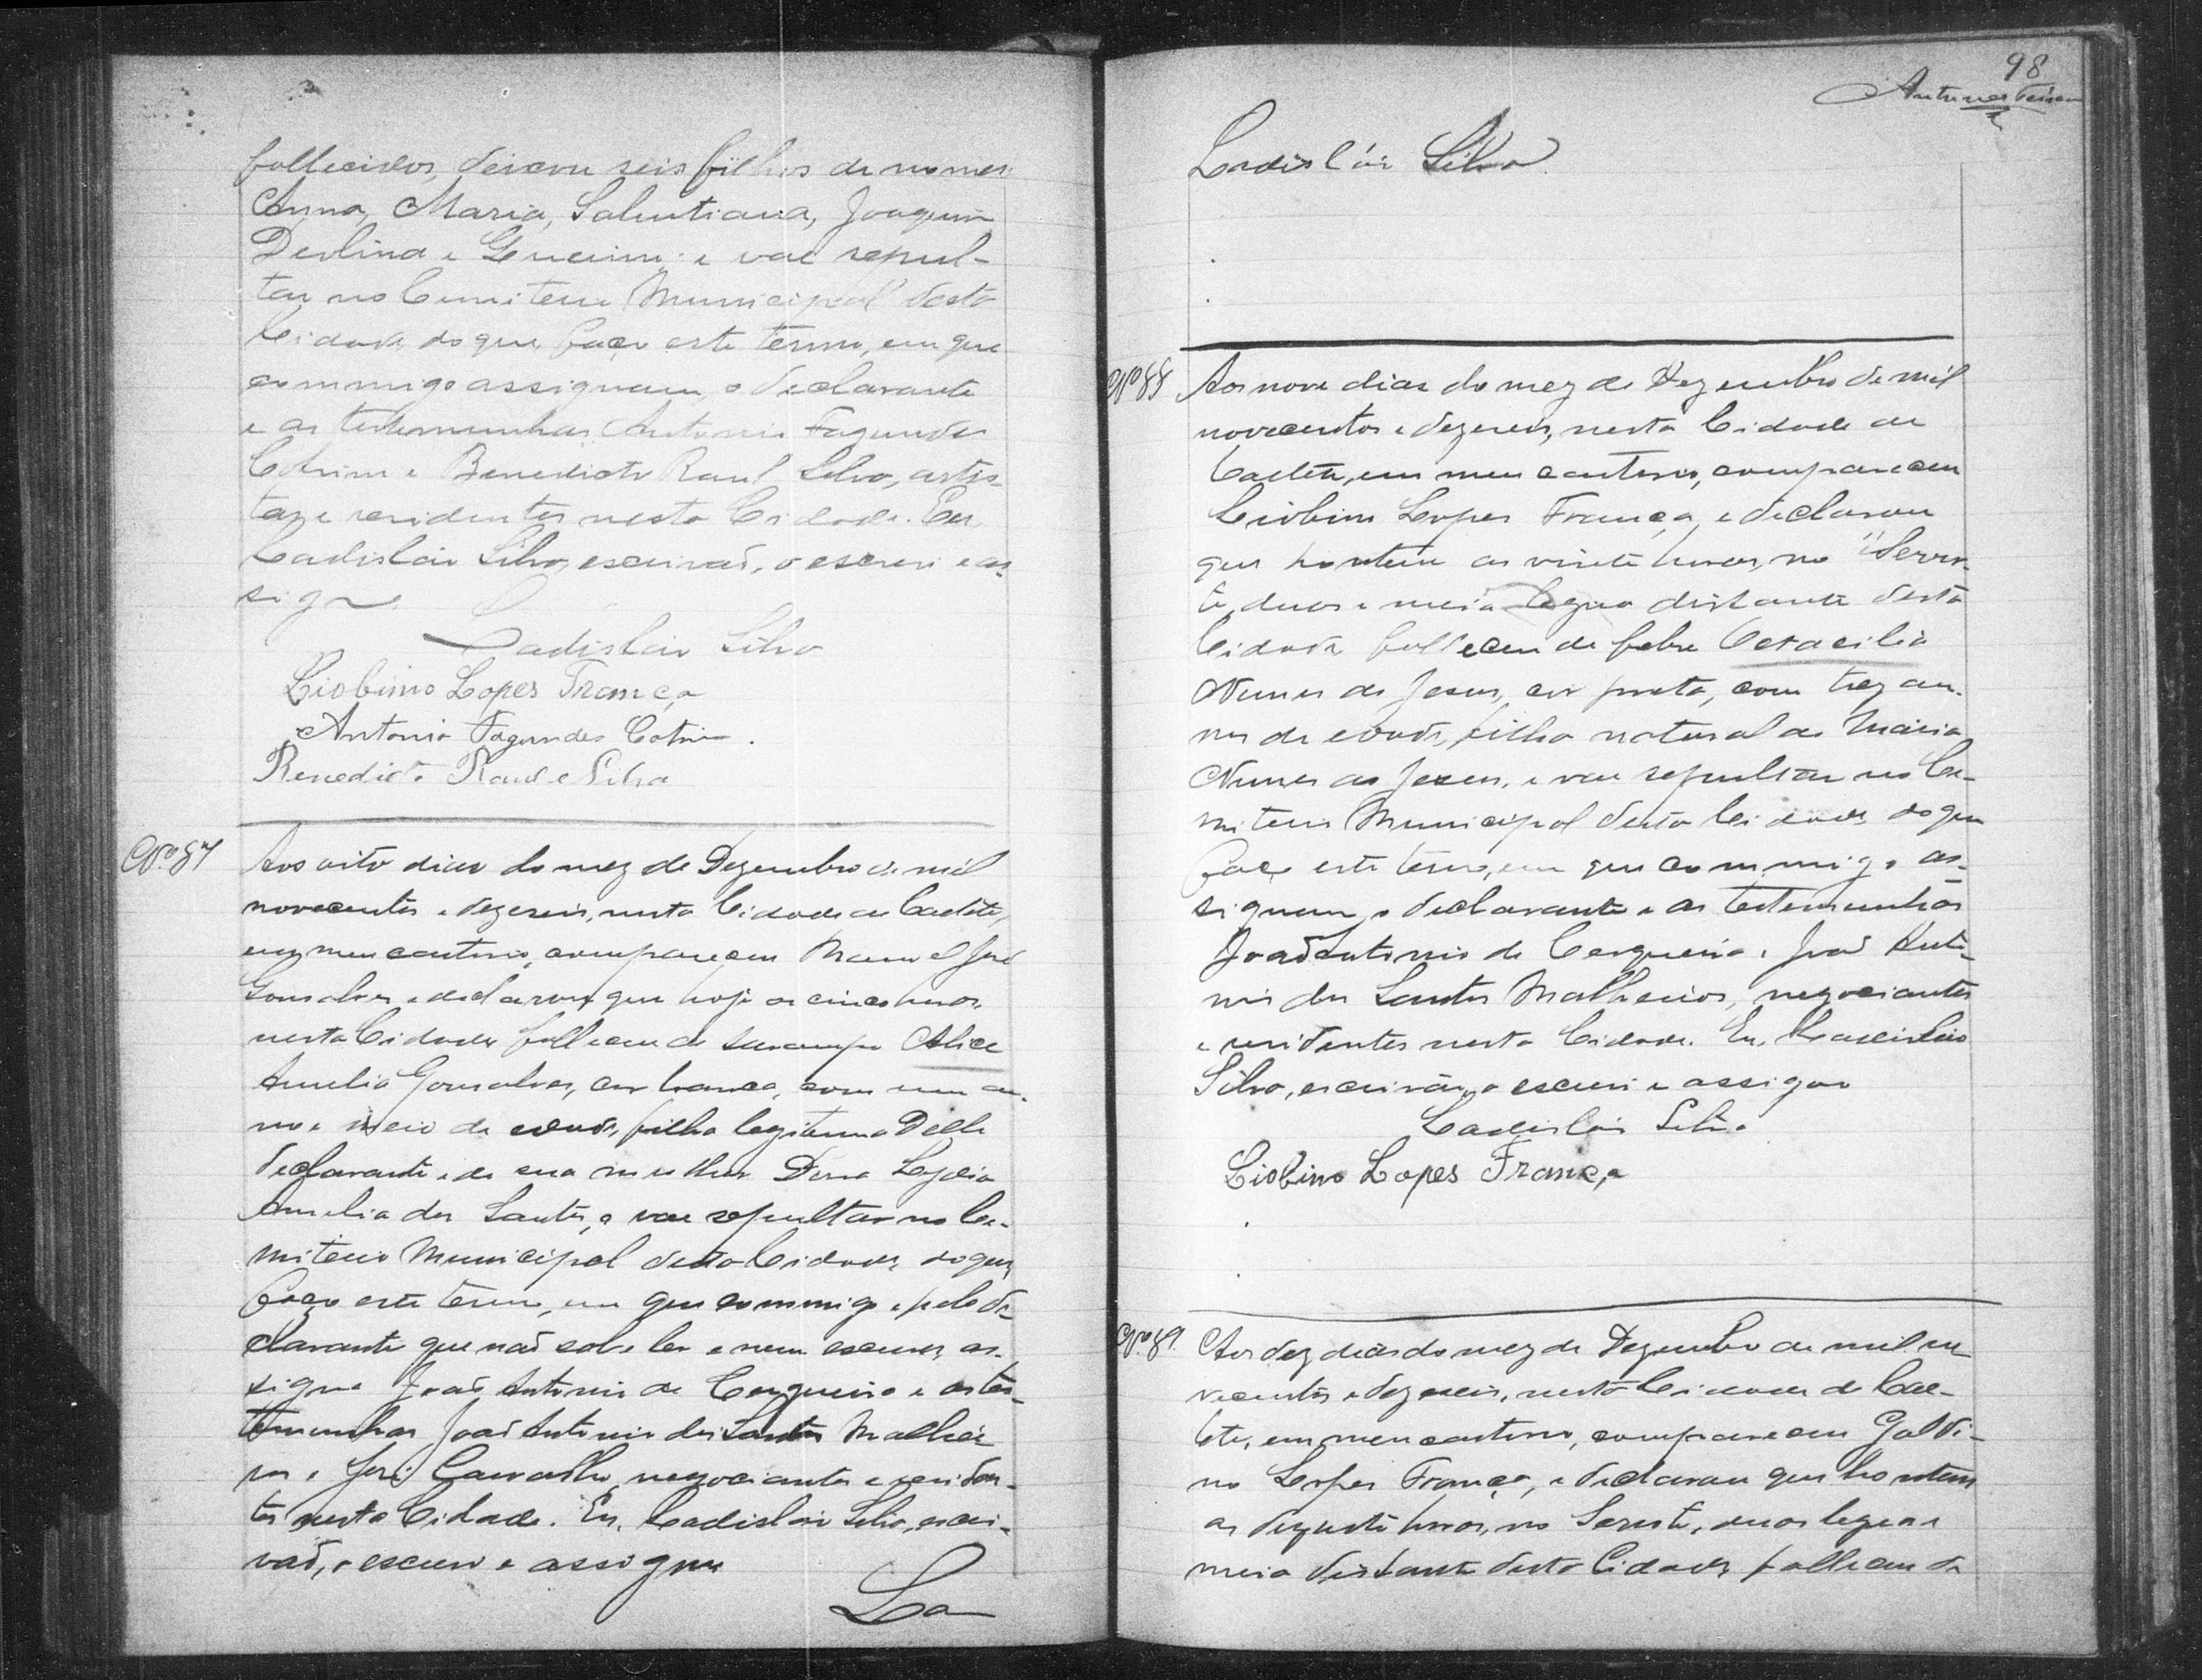 fallecidos, deixou seis filhos de nomes:
Anna, Maria, Salustiana, Joaquim
Deolina e e vae sepul-
tar no Cemiterio Municipal desta
Cidade, do que, faço este termo, em que
commigo assignam o declarante
e as testemunhas Antonio Fagundes
Cotrim e Benedicto Raul e Silva, artis-
tas e residentes nesta Cidade. Eu
Ladisláo Silva, escrivaõ, o escrevi e as-
signo
Ladisláo Silva
Liobino Lopes França
Antonio Fagundes Cotrim.
Benedicto Raul e Silva
Nº 87
Aos oito dias do mez de Dezembro de mil
novecentos e dezeseis, nesta Cidade de Caeteté,
em meu cartorio, compareceu Manoel José
Gonsalves, e declarou que hoje as cinco horas,
nesta Cidade, falleceu de sarampo Alice
Amelia Gonsalves, cor branca, com um an-
no e meio de edade, filha legitima delle
declarante e de sua mulher Dona Lydia
Amelia dos Santos, e vae sepultar no Ce-
miterio Municipal desta Cidade, do que,
faço este termo, em que commigo e pelo de-
clarante que naõ sabe ler e nem escrever, as-
signa Joaõ Antonio de Cerqueira e as tes-
temunhas Joaõ Antonio dos Santos Malhei-
ros e José Carvalho, negociantes e residen-
tes nesta Cidade. Eu, Ladisláo Silva, escri-
vaõ, o escrevi e assigno
La
98
Antunes
Ladisláo Silva
Nº 88
Aos nove dias do mez de Dezembro de mil
novecentos e dezeseis, nesta Cidade de
Caeteté, em meu cartorio, compareceu
Liobino Lopes França, e declarou
que hontem as vinte horas, no "Serro-
te, duas e meia legua distante desta
Cidade falleceu de febre Octacilia
Nunes de Jesus, cor preta, com trez an-
nos de edade, filha natural de Maria
Nunes de Jesus, e vae sepultar no Ce-
miterio Municipal desta Cidade, do que
faço este termo, em que commigo as-
signam o declarante e as testemunhas
Joaõ Antonio de Cerqueira e Joaõ Anto-
nio dos Santos Malheiros, negociantes
e residentes nesta Cidade. Eu, Ladisláo
Silva, escrivão, o escrevi e assigno
Ladisláo Silva
Liobino Lopes França
Nº 89
Aos dez dias do mez de Dezembro de mil no-
vecentos e dezeseis, nesta Cidade de Cae-
teté, em meu cartorio, compareceu Galdi-
no Lopes França, e declarou que hontem
as dezesete horas, no Serrote, duas leguas e
meia distante desta Cidade, falleceu de